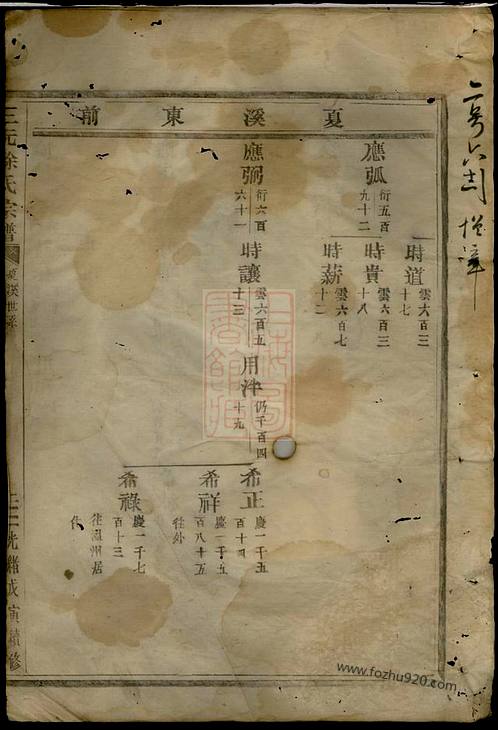 夏溪東前
應弧
衍五百
九十二
時道
雲六百三
十七
時貴
雲六百三
十八
時薪
雲六百七
十二
應弼
衍六百
六十一
時讓
雲六百五
十三
用泮
仍千百四
十九
希正
慶一千五
百十四
希祥
慶一千五
百八十五
往外
希祿
慶一千七
百十三
往溫州居
住
三元徐氏宗譜
夏溪世系
光緒戊寅續修
www.fozhu920.com